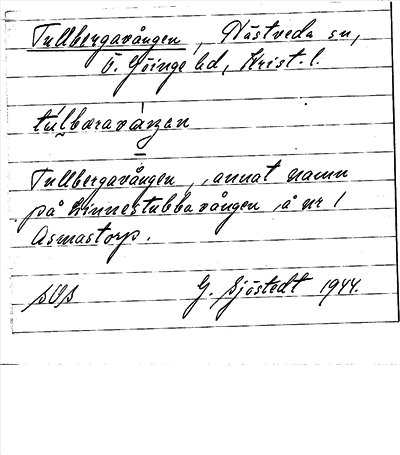 Tullbergavången, Hästveda sn,
Ö. Göinge hd, Krist. l.
tulbaravaŋan
Tullbergavången, annat namn
på Linnestubbavången å nr 1
Asmastorp.
G. Sjöstedt 1944.